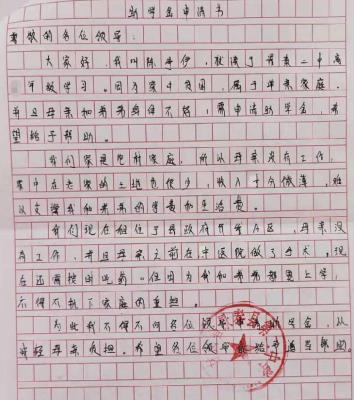 助学金申请书
尊敬的各位领导：
大家好，我叫陈 伊，就读于 二中高
年级学习。因为家中贫困，属于单亲家庭，
并且母亲和弟弟身体不好，需申请助学金，希
望给予帮助。
我们家是 家庭，所以母亲没有工作，
家中在老家的土地也很少，收入十分微薄，难
以支撑我和弟弟的学费和生活费。
我们现在租住于县政府 区，母亲没
有工作，并且母亲之前在中医院做了手术，现
在还需按时吃药。但因为我和弟弟都要上学，
不得不扛了家庭的重担。
为此我不得不向各位领导申请助学金，从
轻母亲负担。希望各位领导 给予适当帮助。